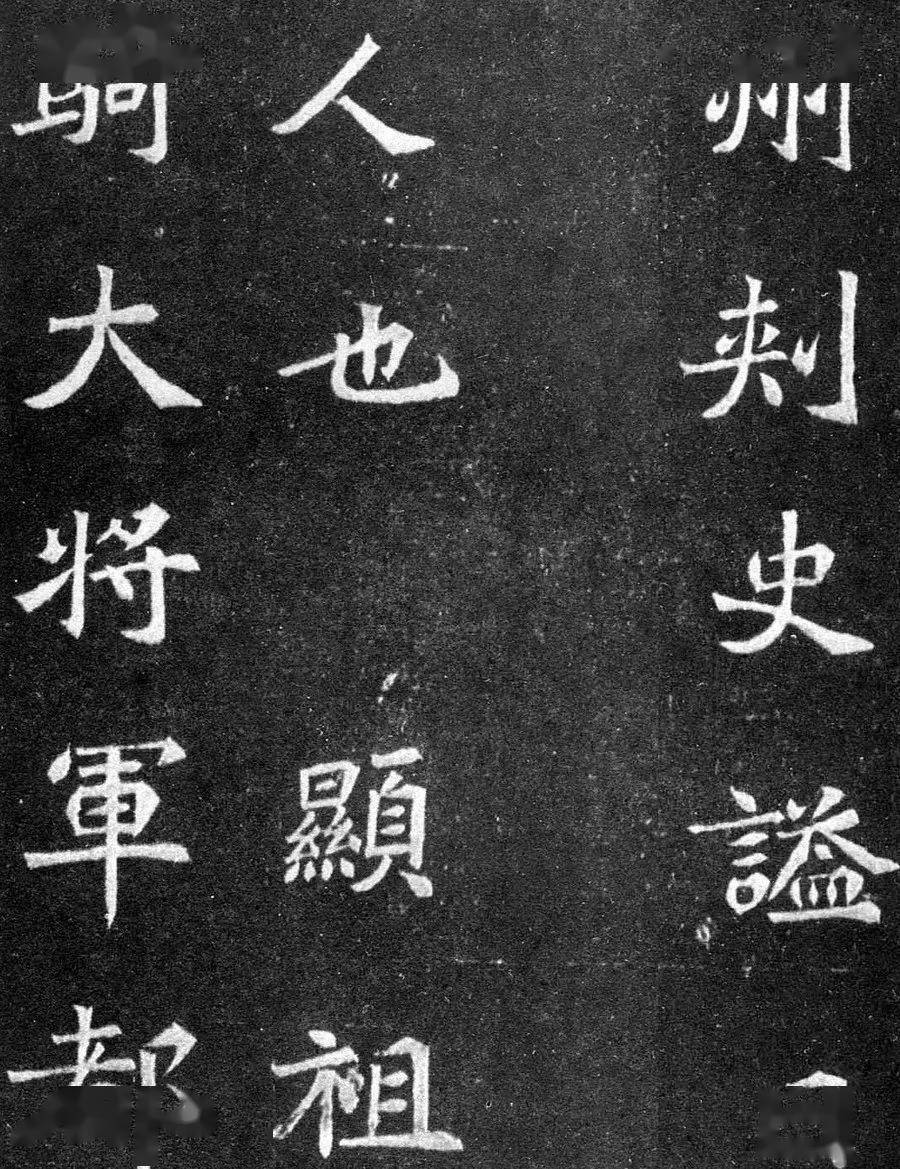 州刺史謚
人也顯祖
大將軍